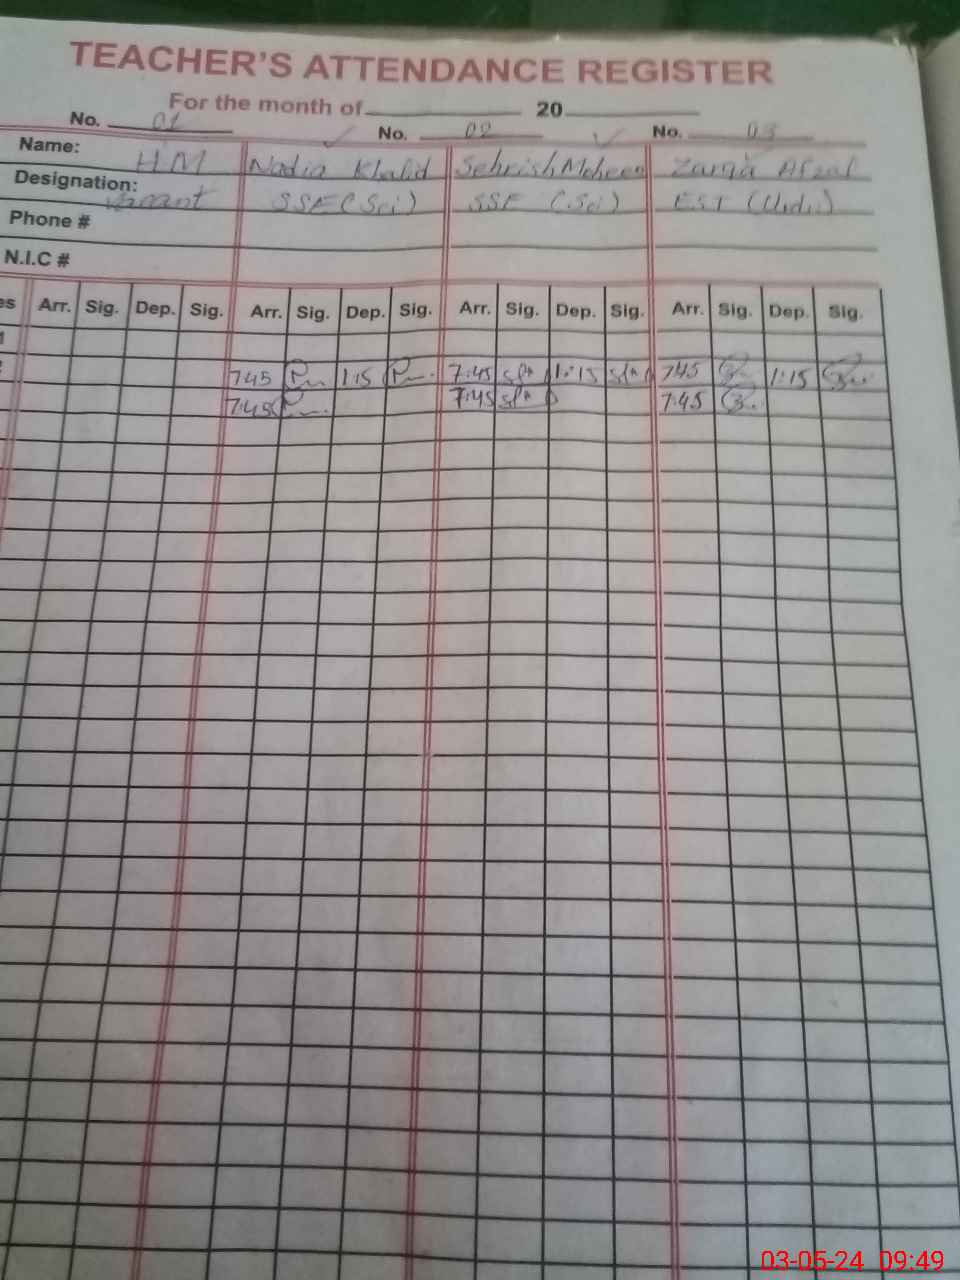 TEACHER'S ATTENDANCE REGISTER
For the month of 20
No. 01 No. 02 No. 03
Name: HM Nadia Khalid Sehrish Maheen Afzal
Designation: Vacant SSE (Sci) SSE (Sci) EST (Urdu)
Phone #
N.I.C #
es Arr. Sig. Dep. Sig. Arr. Sig. Dep. Sig. Arr. Sig. Dep. Sig. Arr. Sig. Dep. Sig.
7:45 1:15 7:45 1:15 7:45 1:15
7:45 7:45 7:45
03-05-24 09:49